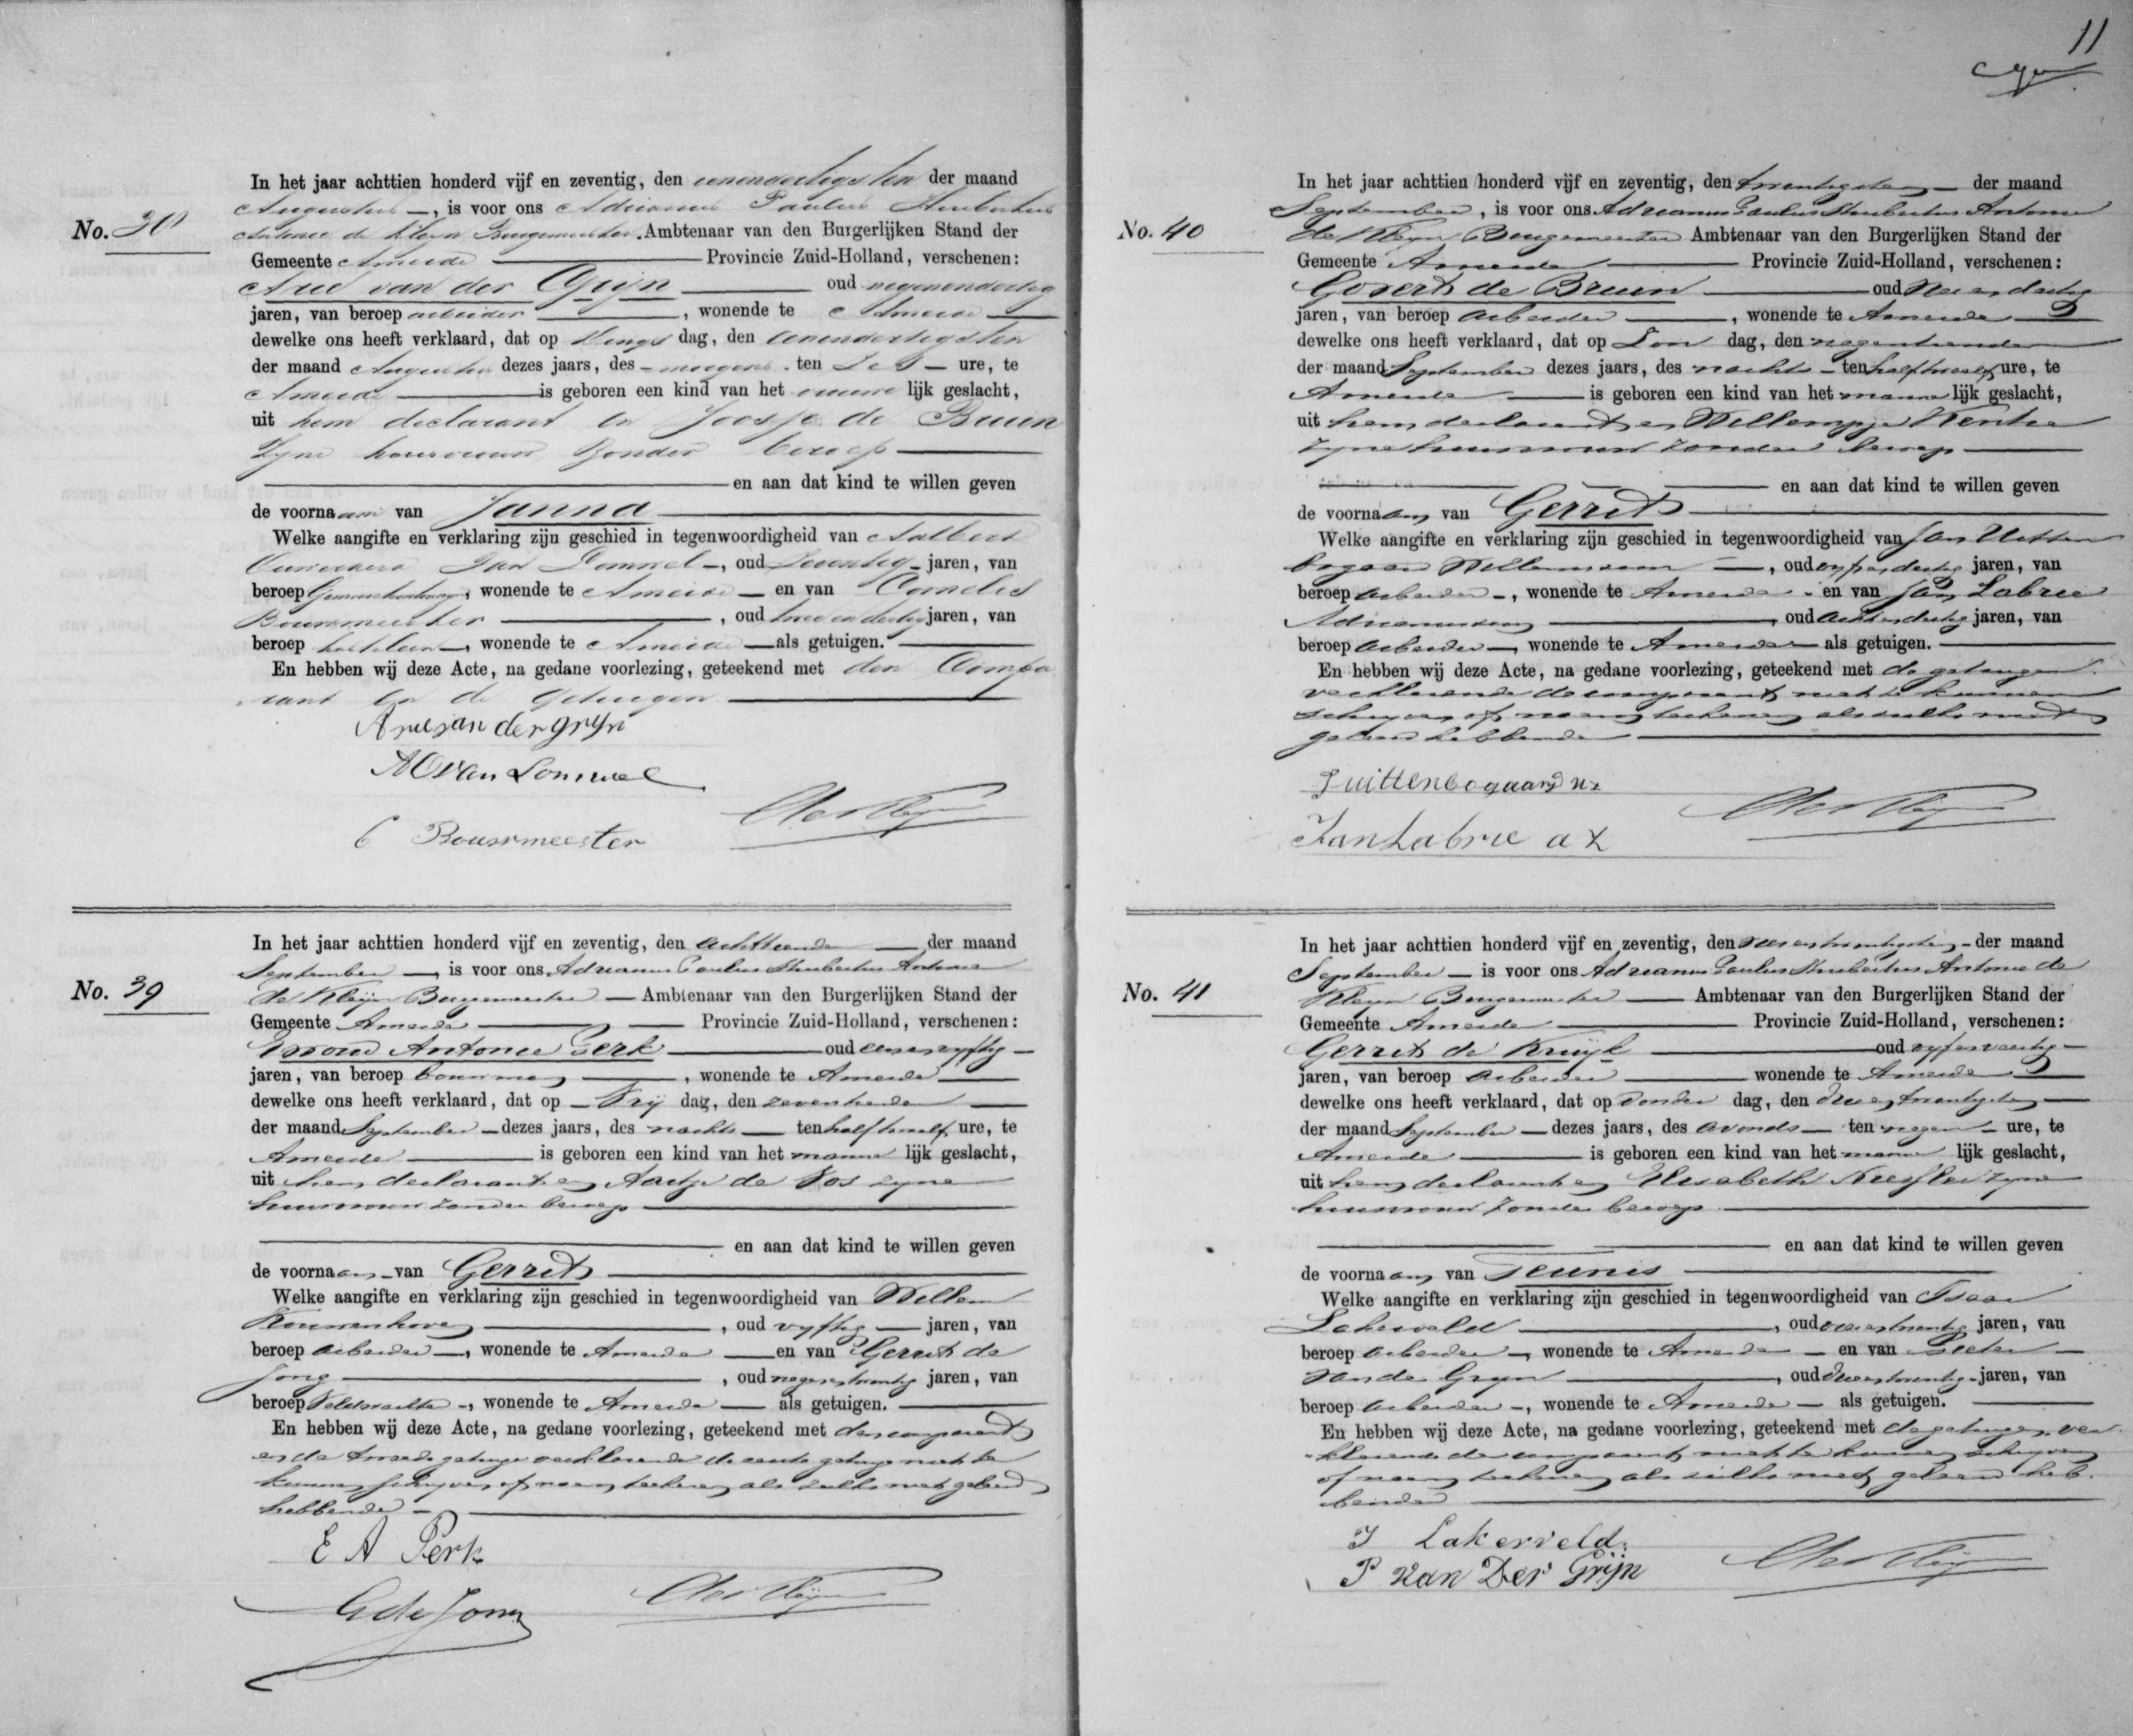 11
No. 38
In het jaar achttien honderd vijf en zeventig, den eenendertigsten der maand
Augustus —, is voor ons Adrianus Paulus Hubertus
Antonie de Kleijn Burgemeester Ambtenaar van den Burgerlijken Stand der
Gemeente Ameide — Provincie Zuid-Holland, verschenen:
Arie van der Grijn — oud negenendertig
jaren, van beroep arbeider —, wonende te Ameide —
dewelke ons heeft verklaard, dat op Dings dag, den eenendertigsten
der maand Augustus dezes jaars, des morgens ten zes — ure, te
Ameide — is geboren een kind van het vrouwe lijk geslacht,
uit hem declarant en Joosje de Bruin
zijne huisvrouw zonder beroep —
— en aan dat kind te willen geven
de voornaam van Janna —
Welke aangifte en verklaring zijn geschied in tegenwoordigheid van Aalbert
van Lommel —, oud zeventig jaren, van
beroep, wonende te Ameide — en van Cornelis
Bouwmeester —, oud twee en dertig jaren, van
beroep kastelein —, wonende te Ameide — als getuigen. —
En hebben wij deze Acte, na gedane voorlezing, geteekend met den Compa
rant en de getuigen —
Arie van der grijn
AO van Lommel
C Bouwmeester
No. 39
In het jaar achttien honderd vijf en zeventig, den achttienden — der maand
September —, is voor ons Adrianus Paulus Hubertus Antonie
de Kleijn Burgemeester — Ambtenaar van den Burgerlijken Stand der
Gemeente Ameide — Provincie Zuid-Holland, verschenen:
Evoud Antonie Perk — oud eenenvyftig —
jaren, van beroep bouwman —, wonende te Ameide —
dewelke ons heeft verklaard, dat op — Vrij dag, den zeventienden —
der maand September — dezes jaars, des nachts — ten half twaalf ure, te
Ameide — is geboren een kind van het manne lijk geslacht,
uit hem declarant en Aartje de Vos zyne
huisvrouw zonder beroep —
— en aan dat kind te willen geven
de voornaam van Gerrit —
Welke aangifte en verklaring zijn geschied in tegenwoordigheid van Willem
Kouwenhoven —, oud vyftig — jaren, van
beroep arbeider —, wonende te Ameide — en van Gerrit de
Jong —, oud negenentwintig jaren, van
beroep Veldwachter —, wonende te Ameide — als getuigen. —
En hebben wij deze Acte, na gedane voorlezing, geteekend met den comparant
en de tweede getuige verklarende de eerste getuige niet te
kunnen schryven of naamteekenen als zulks niet geleerd
hebbende —
E A Perk
G de Jong
No. 40
In het jaar achttien honderd vijf en zeventig, den twintigsten — der maand
September, is voor ons Adrianus Paulus Hubertus Antonie
de Kleyn Burgemeester Ambtenaar van den Burgerlijken Stand der
Gemeente Ameide — Provincie Zuid-Holland, verschenen:
Govert de Bruin — oud
jaren, van beroep arbeider —, wonende te Ameide —
dewelke ons heeft verklaard, dat op Zon dag, den negentienden
der maand September dezes jaars, des nachts — ten half twaalf ure, te
Ameide — is geboren een kind van het manne lijk geslacht,
uit hem declarant en Willempje
zyne huisvrouw zonder beroep —
— en aan dat kind te willen geven
de voornaam van Gerrit —
Welke aangifte en verklaring zijn geschied in tegenwoordigheid van Jan Uitten
bogaard Willemszoon —, oud vyfendertig jaren, van
beroep arbeider —, wonende te Ameide — en van Jan Labrie
Adrianuszoon —, oud achtendertig jaren, van
beroep arbeider —, wonende te Ameide — als getuigen. —
En hebben wij deze Acte, na gedane voorlezing, geteekend met de getuigen
verklarende de comparant niet te kunnen
schryven of naamteekenen als zulks niet
geleerd hebbende —
J uittenbogaard wz
Jan Labrie a z
No. 41
In het jaar achttien honderd vijf en zeventig, den — der maand
September — is voor ons Adrianus Paulus Hubertus Antonie de
Kleyn Burgemeester — Ambtenaar van den Burgerlijken Stand der
Gemeente Ameide — Provincie Zuid-Holland, verschenen:
Gerrit de Kruijk — oud vyfenveertig —
jaren, van beroep arbeider — wonende te Ameide —
dewelke ons heeft verklaard, dat op Donder dag, den drieentwintigsten —
der maand September — dezes jaars, des avonds — ten negen — ure, te
Ameide — is geboren een kind van het manne lijk geslacht,
uit hem declarant en Elisabeth zyne
huisvrouw zonder beroep —
— en aan dat kind te willen geven
de voornaam van Teunis —
Welke aangifte en verklaring zijn geschied in tegenwoordigheid van Isaac
Lakerveld —, oud jaren, van
beroep arbeider —, wonende te Ameide — en van Pieter —
van der Gryn —, oud drieentwintig jaren, van
beroep arbeider —, wonende te Ameide — als getuigen. —
En hebben wij deze Acte, na gedane voorlezing, geteekend met de getuigen ver
klarende de comparant niet te kunnen schryven
of naamteekenen als zulks niet geleerd heb-
bende —
I Lakerveld.
P van Der Grijn